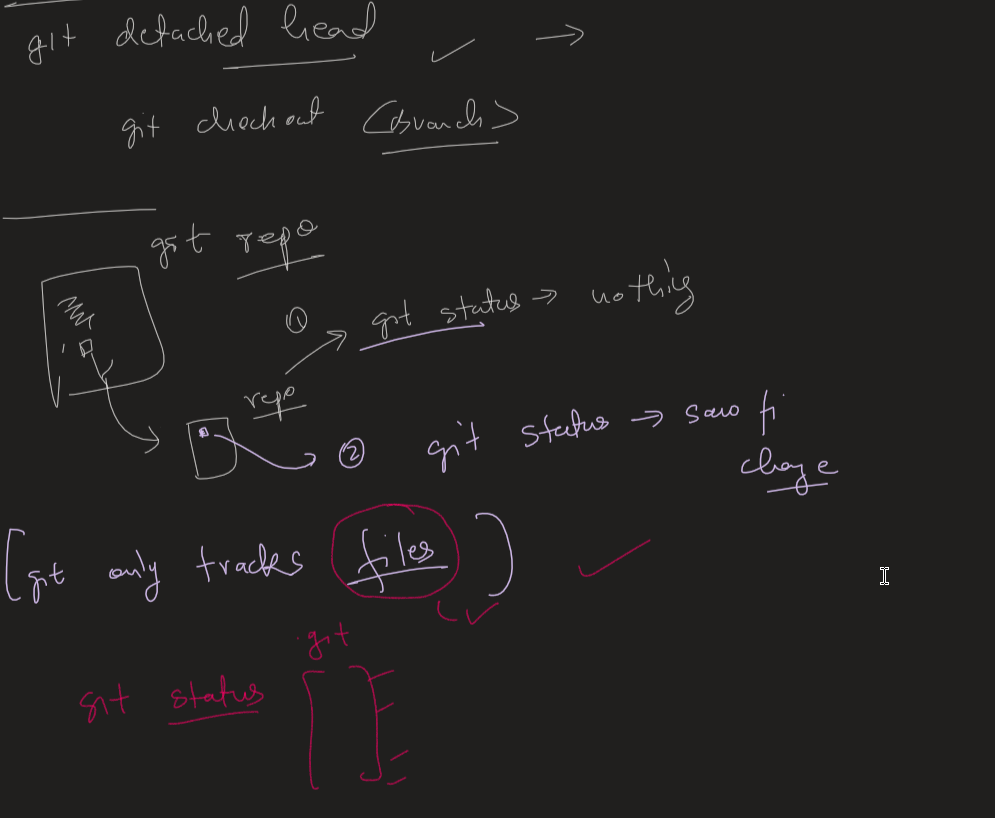 git detached head
git checkout <branch>
git repo
① git status → nothing
repo
② git status → saw fi
change
[git only tracks files]
.git
git status